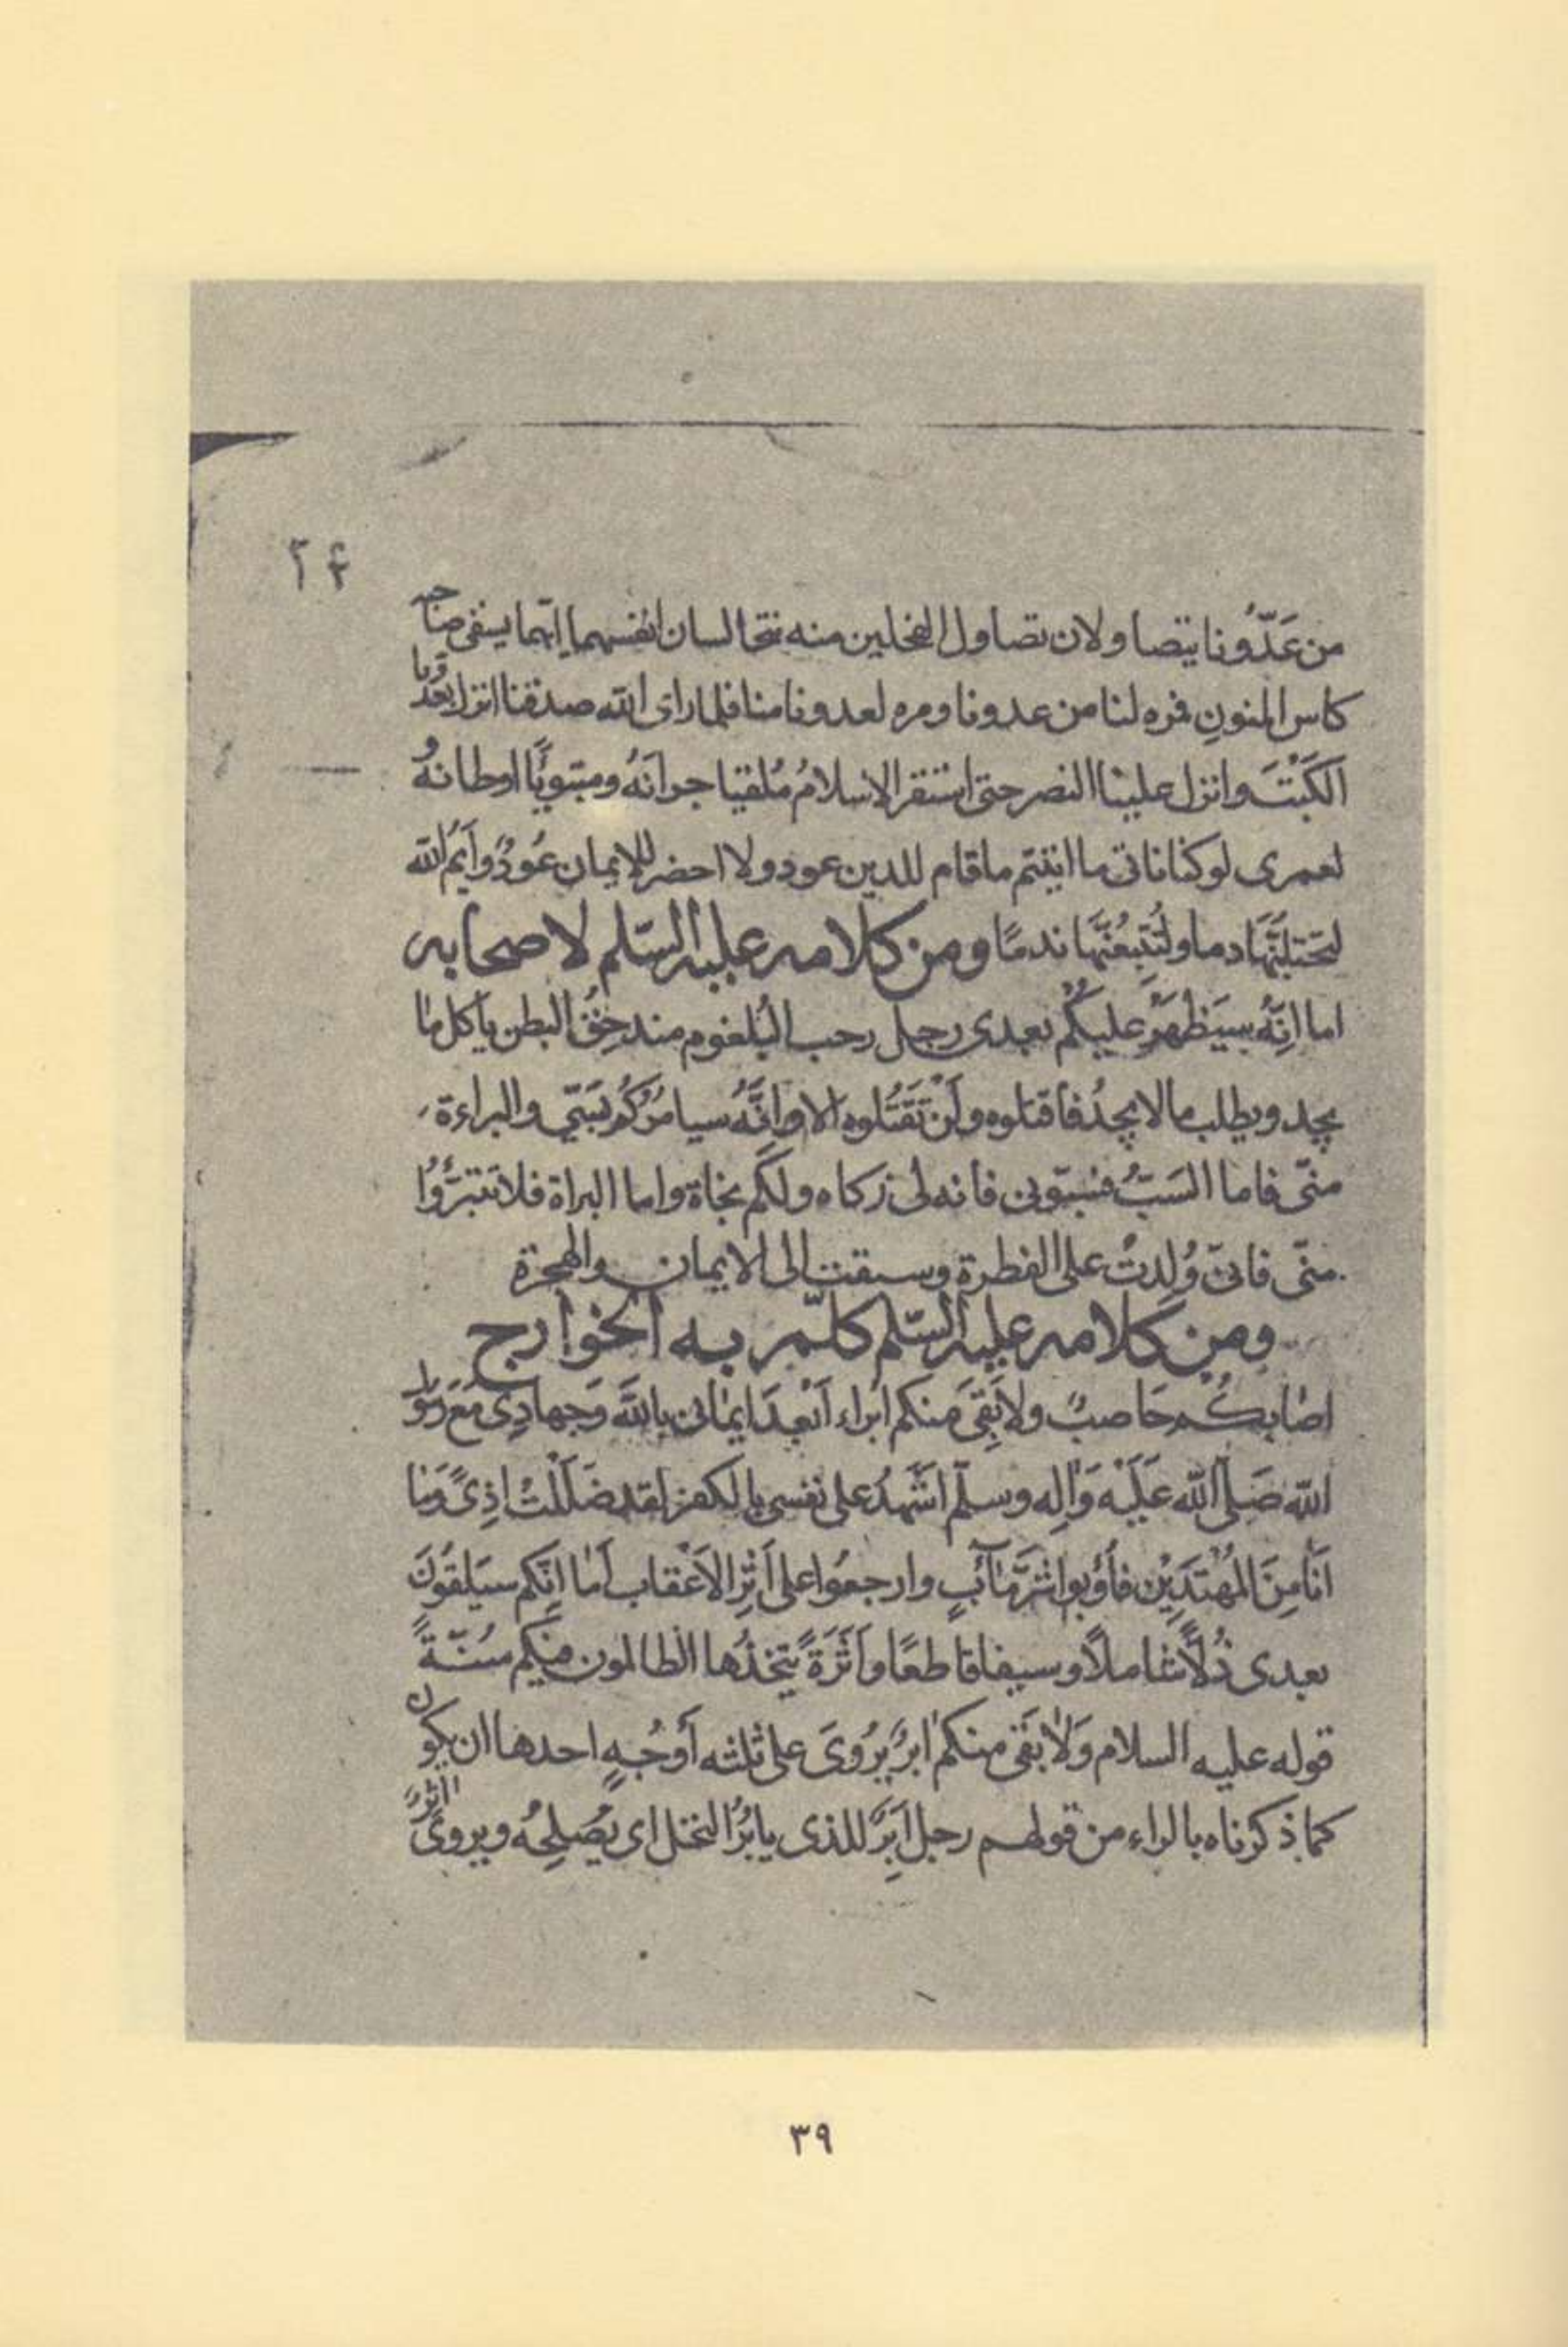 ٢۴
من عَدُوّنا يتصاولان تصاول الفحلين منه يتخالسان انفسهما ايّهما يسقى صاحبه
كاس المنونِ فمره لنا من عدونا ومره لعدونا منا فلما راى الله صدقنا انزل بعَدُوّنا
الكَبْتَ وانزل علينا النصر حتى استقر الاسلامُ مُلقيا جرانَهُ ومتبويًا اوطانهُ و
لعمرى لو كنا ناتى ما اتيتم ما قام للدين عود ولا احضر للايمان عُودٌ وايمُ الله
لتحتلبُنّها دما ولتُتبِعُنَّها ندمًا ومن كلامه عليه السّلم لاصحابه
اما انّه سيَظْهَرُ عليكُم بعدى رجل رحب البُلعوم مندحِقُ البطن ياكل ما
يجد ويطلب ما لا يجدُ فاقتلوه ولَنْ تَقْتُلوه الا وانَّهُ سيامُرُكُم بسَبّي والبراءة
منّى فاما السَبُّ فسبّونى فانه لى زكاه ولكُم نجاة واما البراة فلا تَتَبرَّؤُا
منّى فانى وُلِدتُ على الفطرة وسبقت الى الايمان والهجرة
ومن كلامه عليه السّلم كلّم به الخوارج
اصَابكُم حَاصبٌ ولا بَقِىَ منكم ابراء اَبَعْدَ ايمانى بالله وَجهادِى مَعَ رَسُول
الله صَلّى الله عَلَيْه وَالِه وسلّم اَشهدُ على نفسى بالكفر لقد ضَلَلْتُ اذِىً وَمَا
اَنَا مِنَ المُهْتَدِيْن فاُوبوا شَرَّ مَآبٍ وارجعُوا على اَثَرِ الاَعْقاب اَما اِنّكم سيَلقَوْنَ
بعدى ذُلاً شاملاً وسيفا قاطعًا واَثَرَةً يتخذُها الظالمون فيكم سُنّةً
قوله عليه السلام وَلا بَقى منكم ابِرٌ يُروىَ على ثلثه اَوجُهٍ احدها ان يكون
كما ذكرناه بالراء من قولهم رجل اَبِرٌ للذى يابُرُ النخل اى يُصْلِحُه ويروى اثرٌ
٣٩